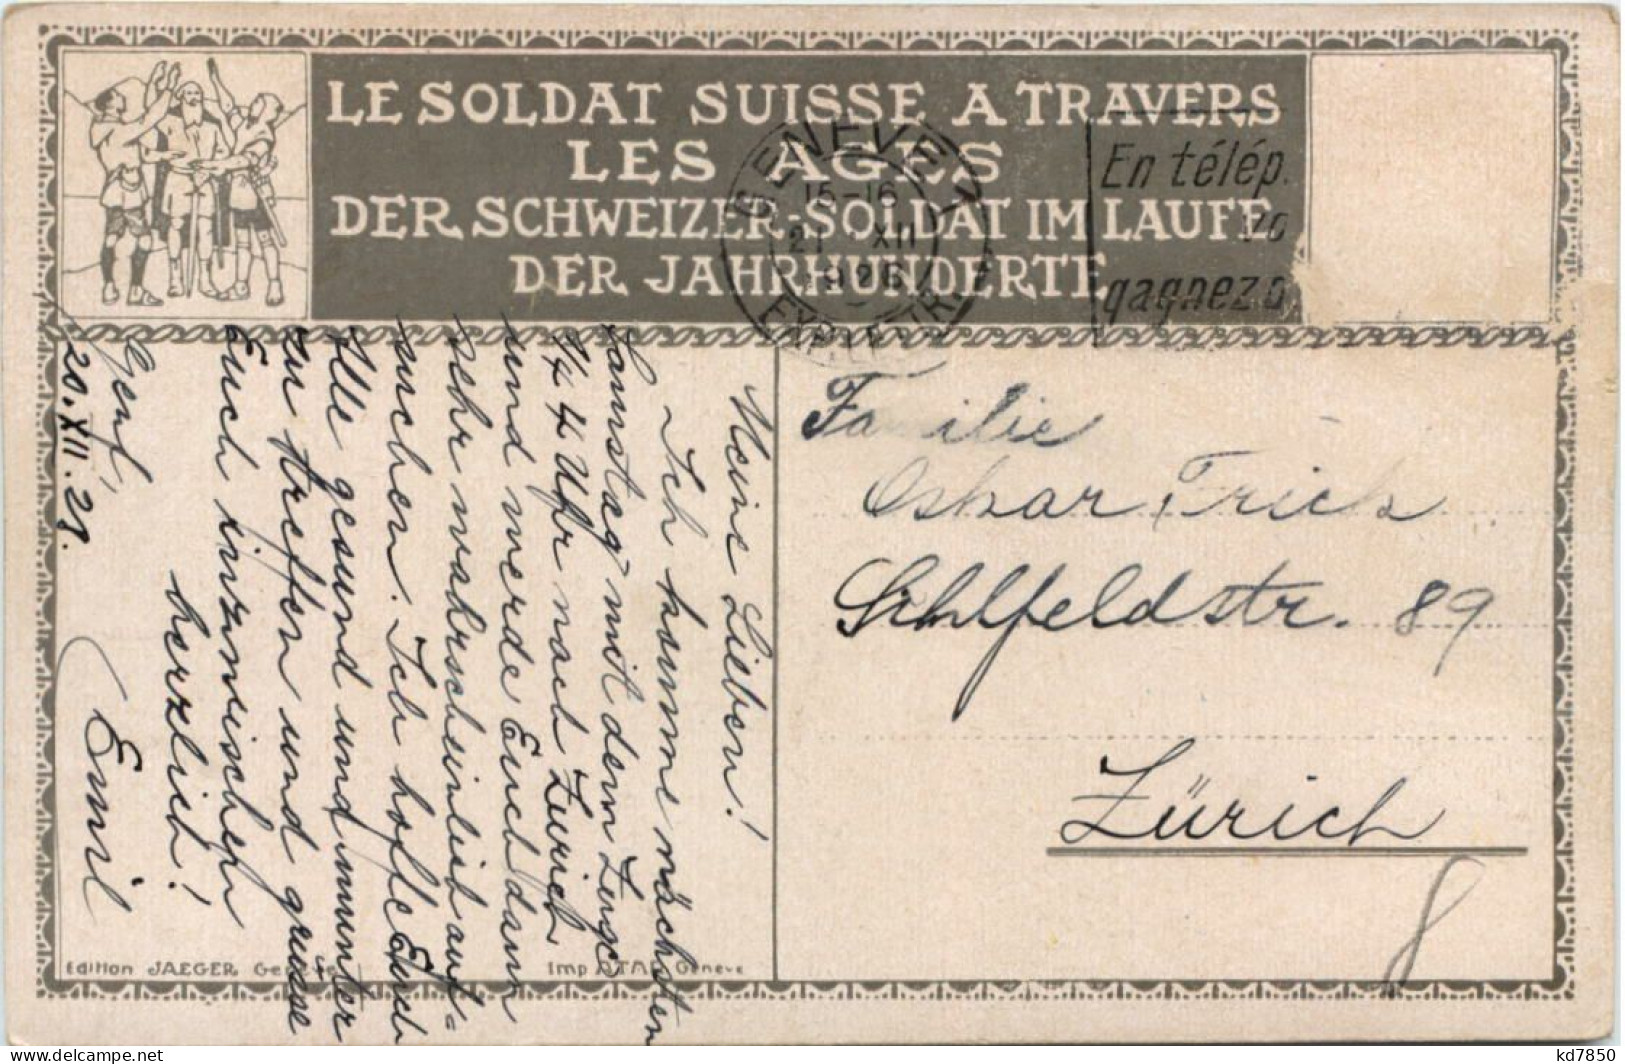 LE SOLDAT SUISSE A TRAVERS
LES AGES
DER SCHWEIZER-SOLDAT IM LAUFE
DER JAHRHUNDERTE
GENEVE 1
15-16
21 XII
1928
EXP. LETTR.
En télép.
vo
gagnez
Meine Lieben!
Ich komme nächsten
Samstag mit dem Zuge
¼ 4 Uhr nach Zürich
und werde Euch dann
sehr wahrscheinlich auf-
suchen. Ich hoffe Euch
Alle gesund und munter
zu treffen und grüsse
Euch inzwischen
herzlich!
Emil
Genf,
20. XII. 28.
Familie
Oskar Frick
Sihlfeldstr. 89
Zürich
8
Edition JAEGER Genève
Imp ATAR Genève
kd7850